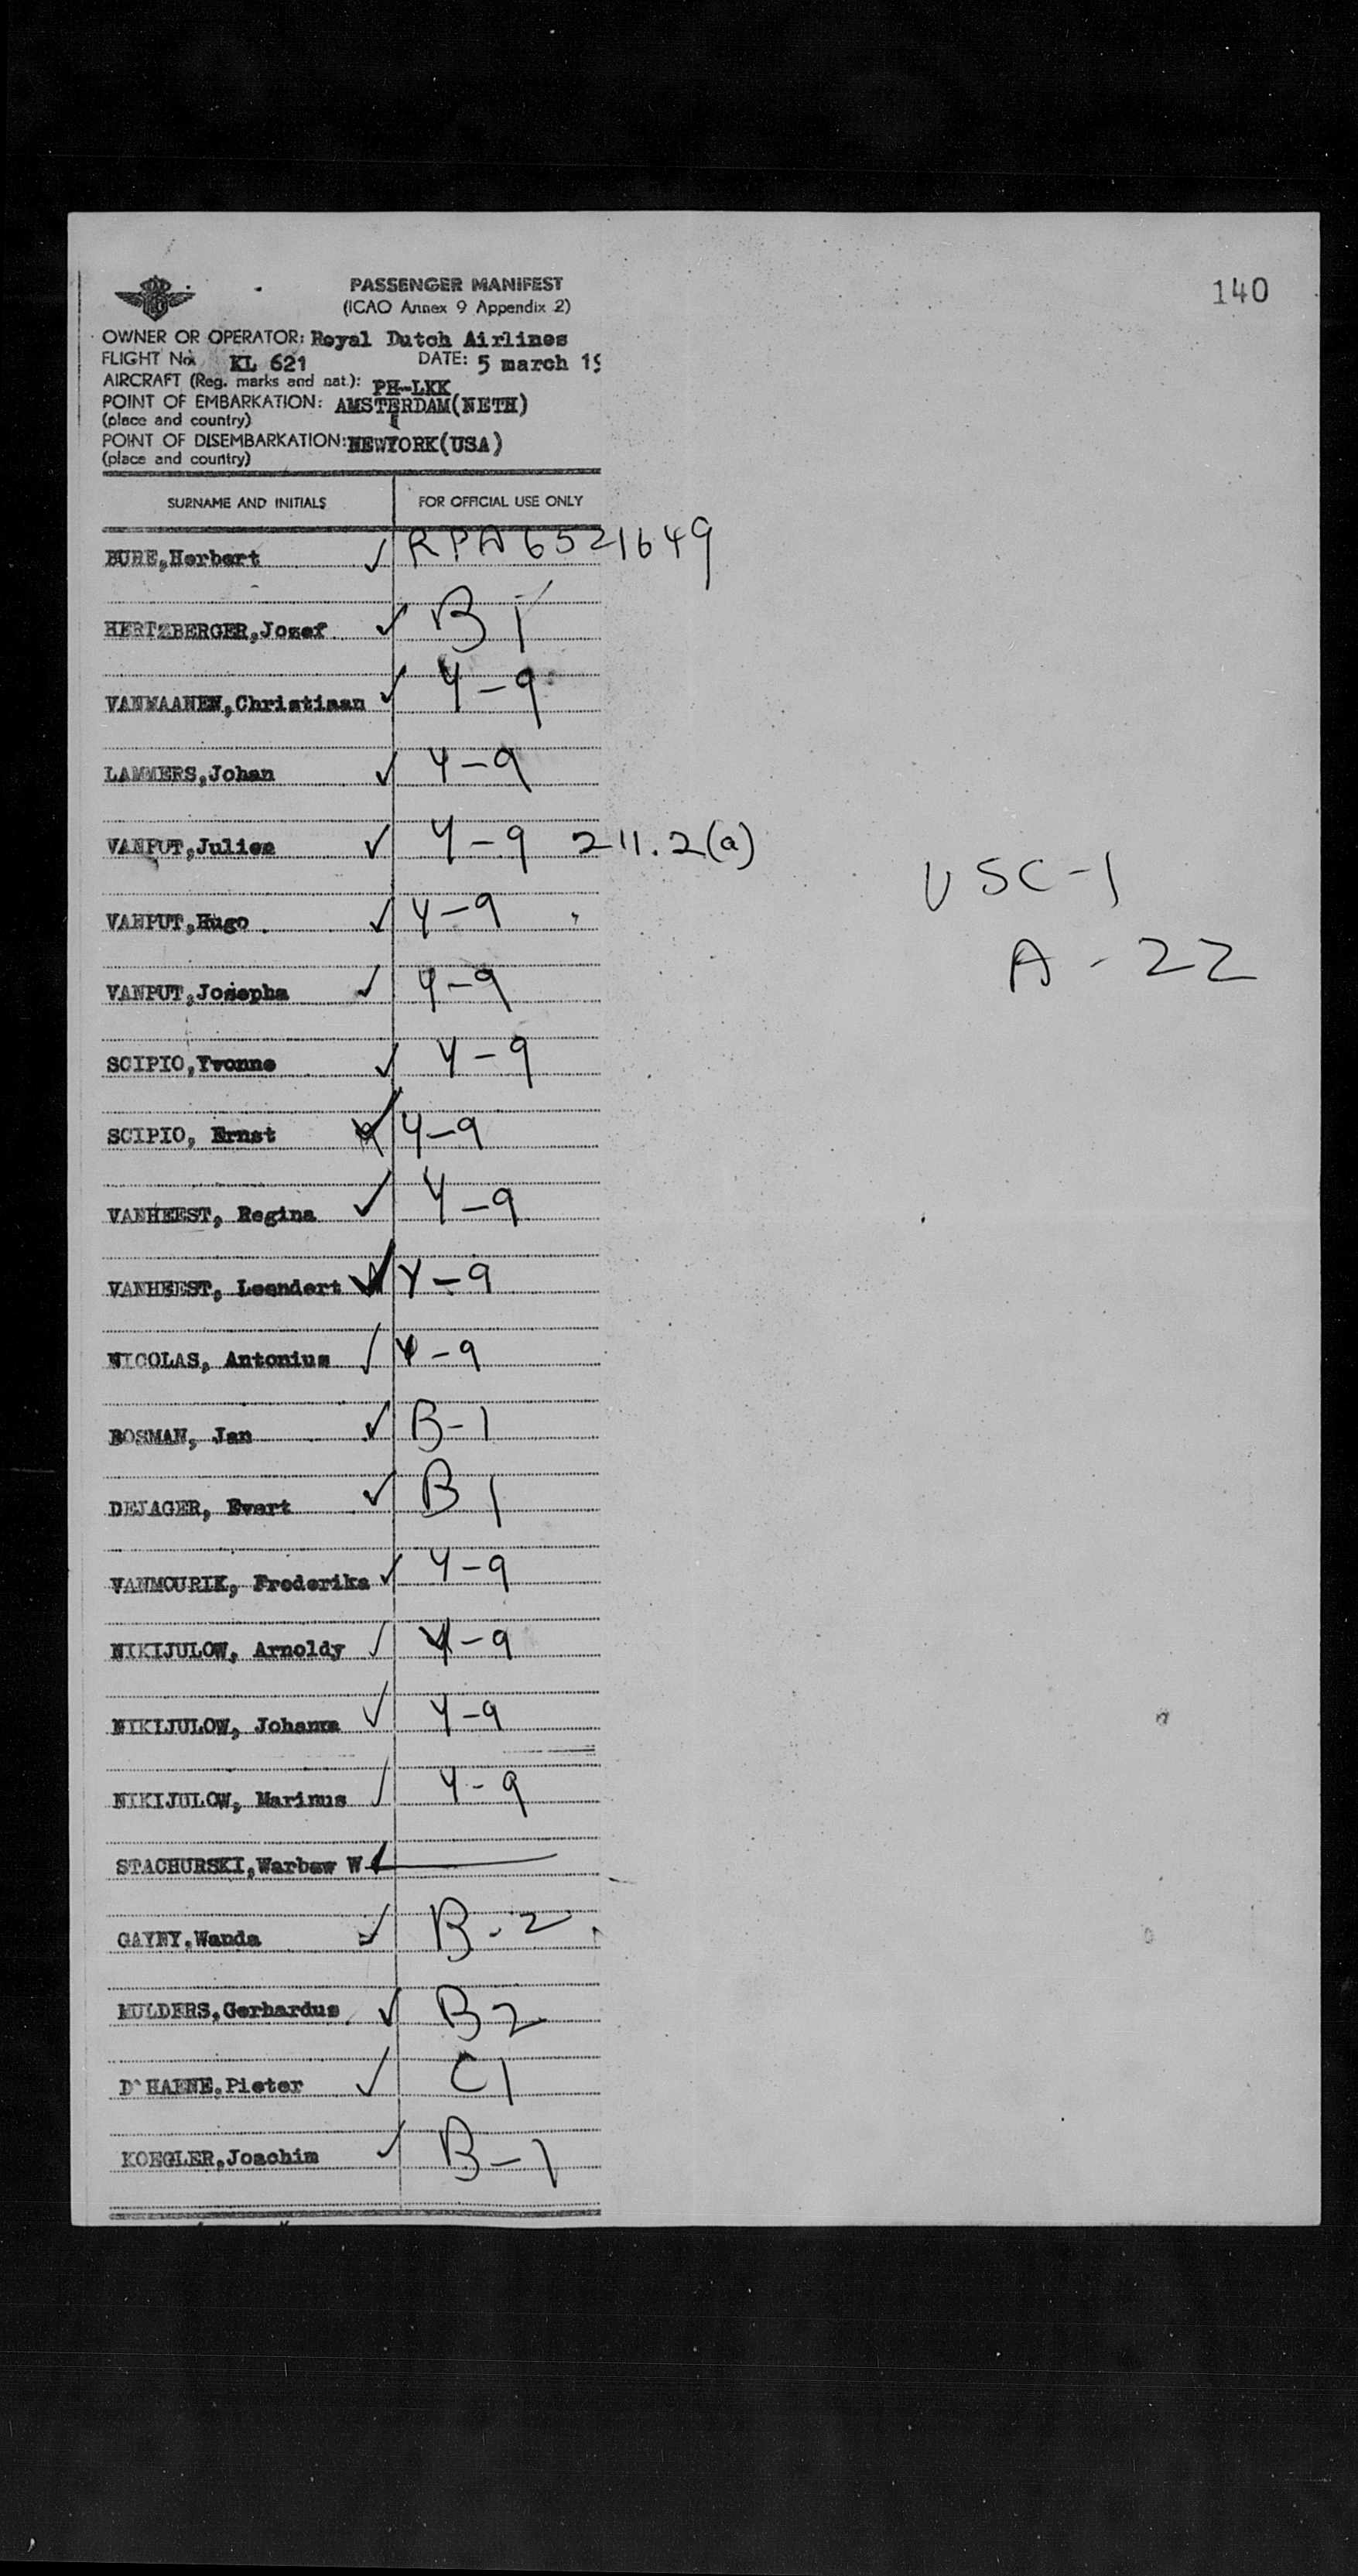 140
PASSENGER MANIFEST
(ICAO Annex 9 Appendix 2)
OWNER OR OPERATOR: Royal Dutch Airlines
FLIGHT No. KL 621 DATE: 5 march 19
AIRCRAFT (Reg. marks and nat.): PH-LKK
POINT OF EMBARKATION: AMSTERDAM(NETH)
(place and country)
POINT OF DISEMBARKATION: NEWYORK(USA)
(place and country)
SURNAME AND INITIALS FOR OFFICIAL USE ONLY
BURE,Herbert ✓ RPA6521649
HERTZBERGER,Jozef ✓ B1
VANMAANEN,Christiaan ✓ Y-9
LAMMERS,Johan ✓ Y-9
VANPUT,Julien ✓ Y-9 211.2(a)
USC-1
VANPUT,Hugo ✓ Y-9
A-22
VANPUT,Josepha ✓ Y-9
SCIPIO,Yvonne ✓ Y-9
SCIPIO, Ernst ✓ Y-9
VANHEEST, Regina ✓ Y-9
VANHEEST, Leendert ✓ Y-9
NICOLAS, Antonius ✓ Y-9
BOSMAN, Jan ✓ B-1
DEJAGER, Evert ✓ B1
VANMOURIK, Frederika ✓ Y-9
NIKIJULOW, Arnoldy ✓ Y-9
NIKIJULOW, Johanna ✓ Y-9
NIKIJULOW, Marinus ✓ Y-9
STACHURSKI,Warbaw W
GAYNY,Wanda ✓ B-2
MULDERS,Gerhardus ✓ B2
D'HAENE,Pieter ✓ C1
KOEGLER,Joachim ✓ B-1